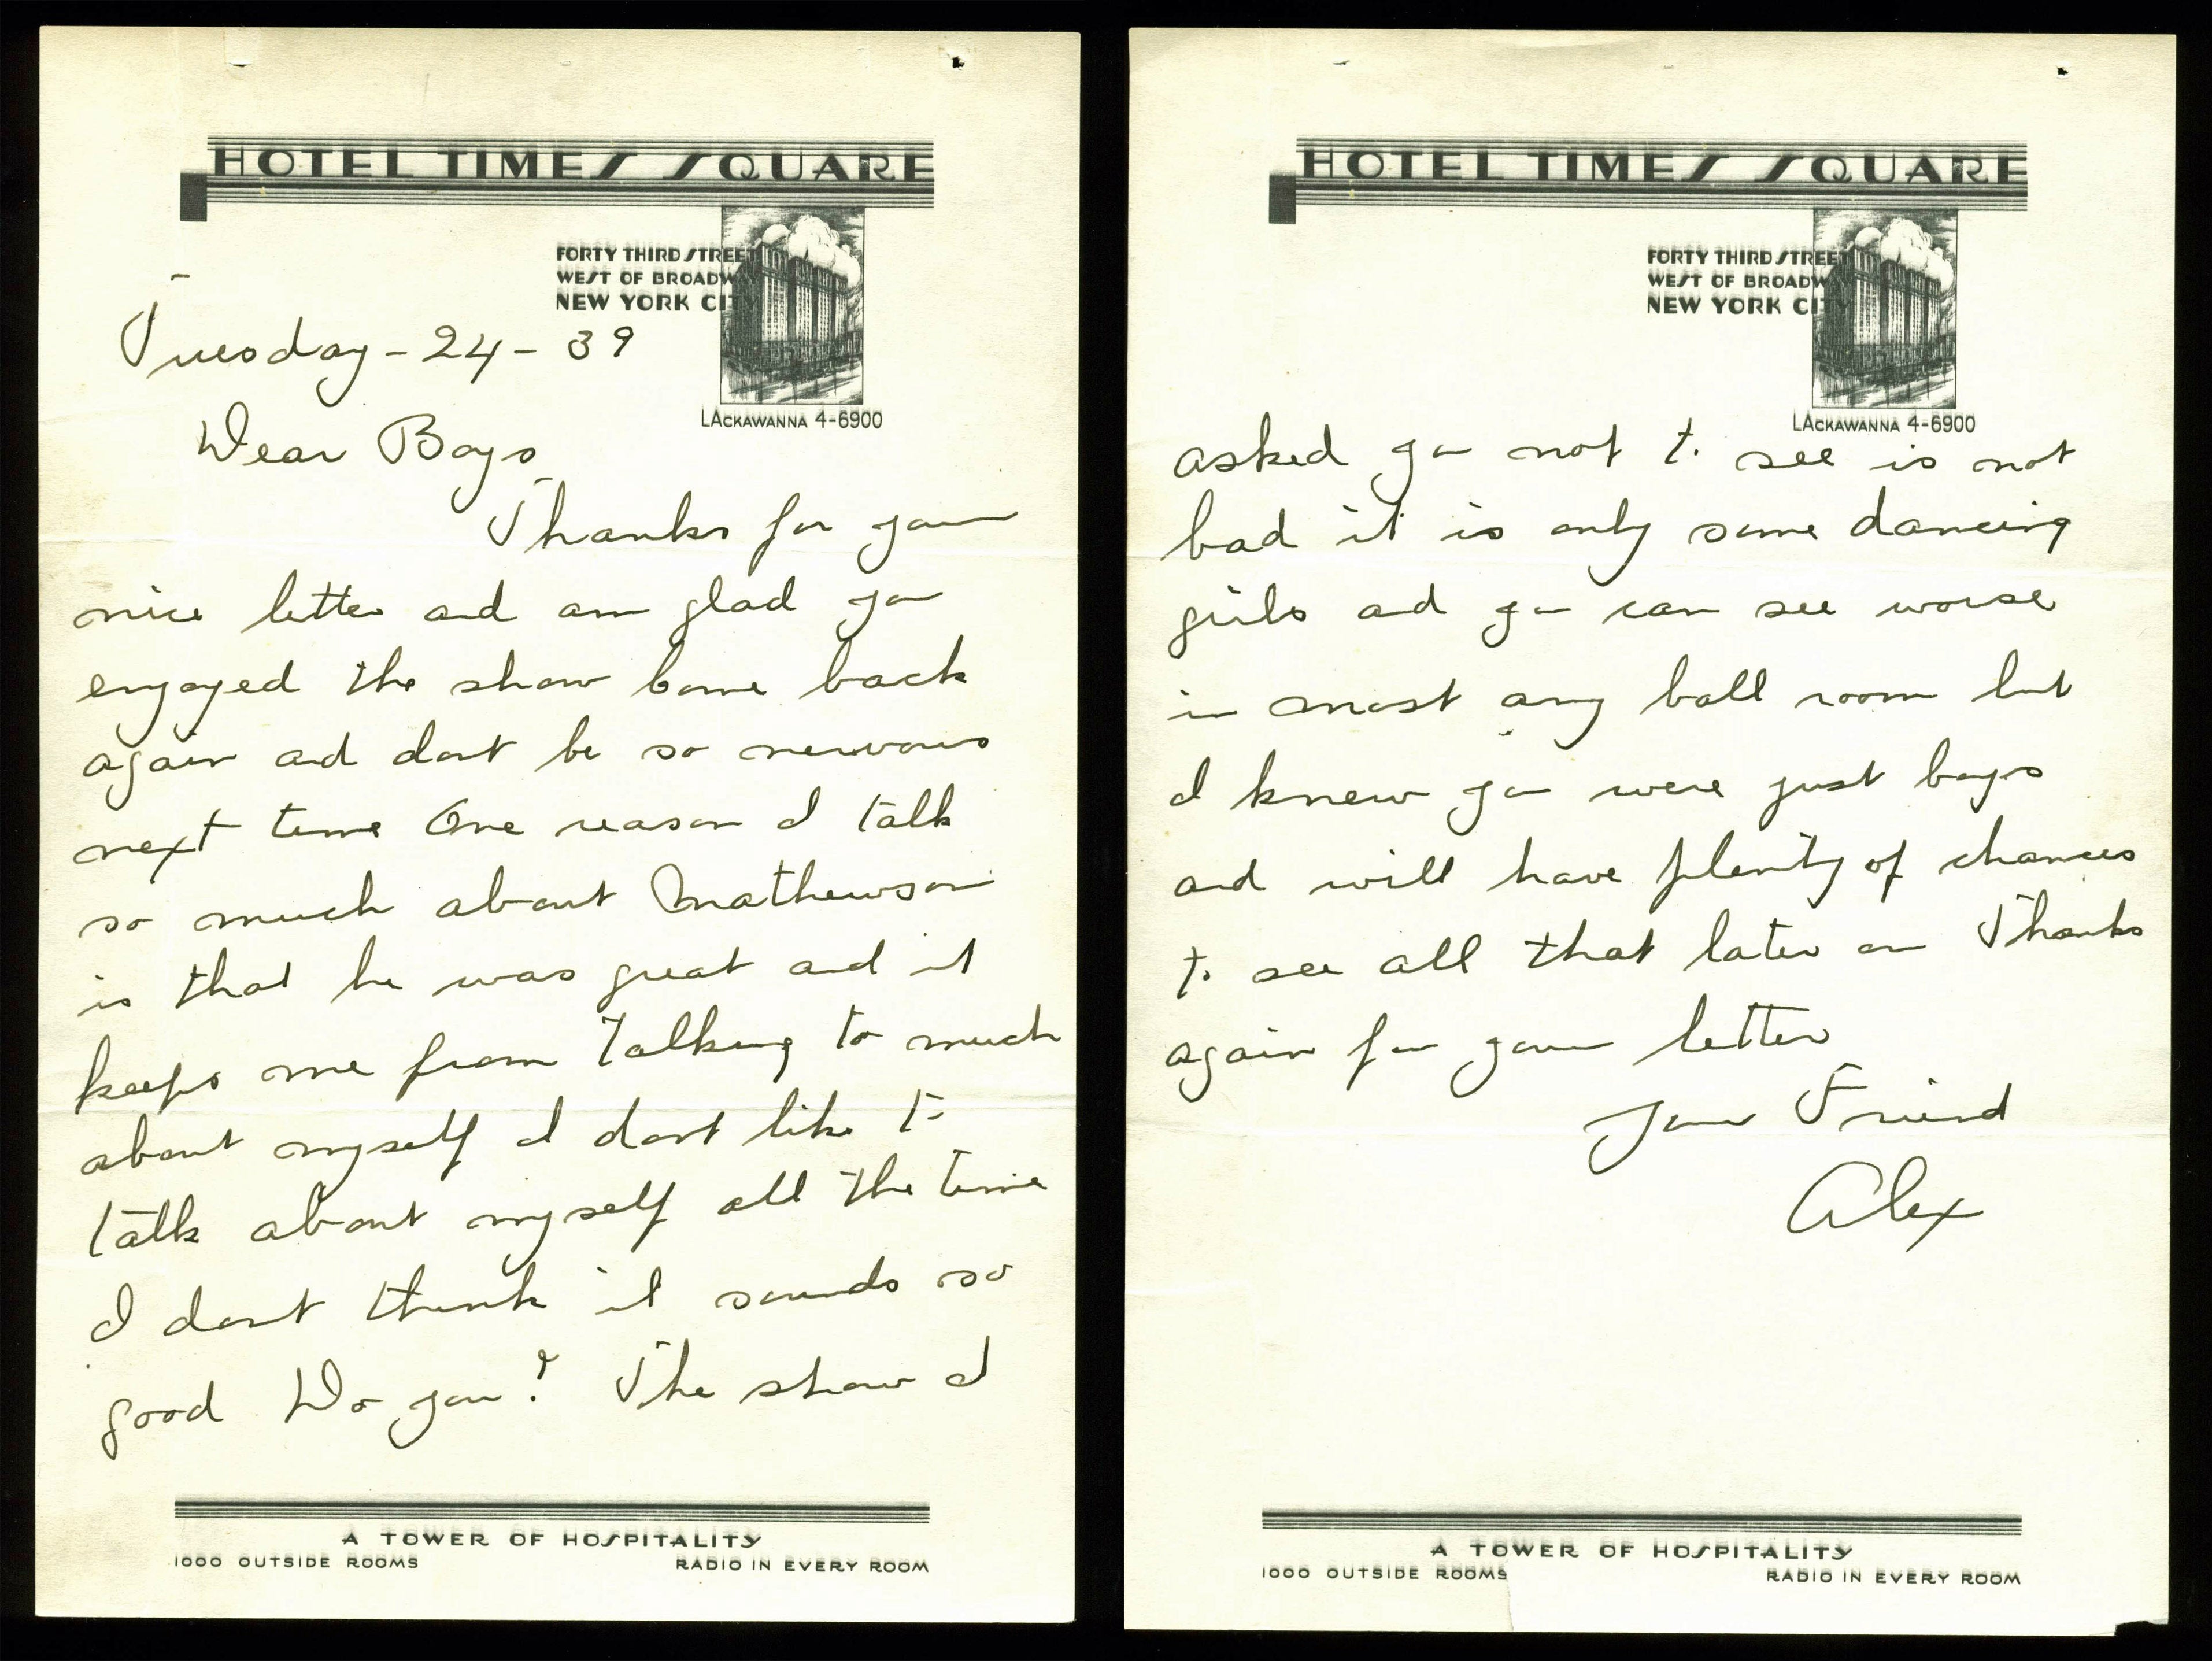 HOTEL TIMES SQUARE
FORTY THIRD STREET
WEST OF BROADWAY
NEW YORK CITY
LACKAWANNA 4-6900
Tuesday - 24 - 39
Dear Boys
Thanks for your
nice letter and am glad you
engoyed the show Come back
again and dont be so nervous
next time One reason I talk
so much about Mathewson
is that he was great and it
keeps me from talking to much
about myself I dont like to
talk about myself all the time
I dont think it sounds so
good Do you? The show I
A TOWER OF HOSPITALITY
1000 OUTSIDE ROOMS RADIO IN EVERY ROOM
HOTEL TIMES SQUARE
FORTY THIRD STREET
WEST OF BROADWAY
NEW YORK CITY
LACKAWANNA 4-6900
asked you not to see is not
bad it is only some dancing
girls and you can see worse
in most any ball room but
I knew you were just boys
and will have plenty of chances
to see all that later on Thanks
again for your letter
Your Friend
Alex
A TOWER OF HOSPITALITY
1000 OUTSIDE ROOMS RADIO IN EVERY ROOM